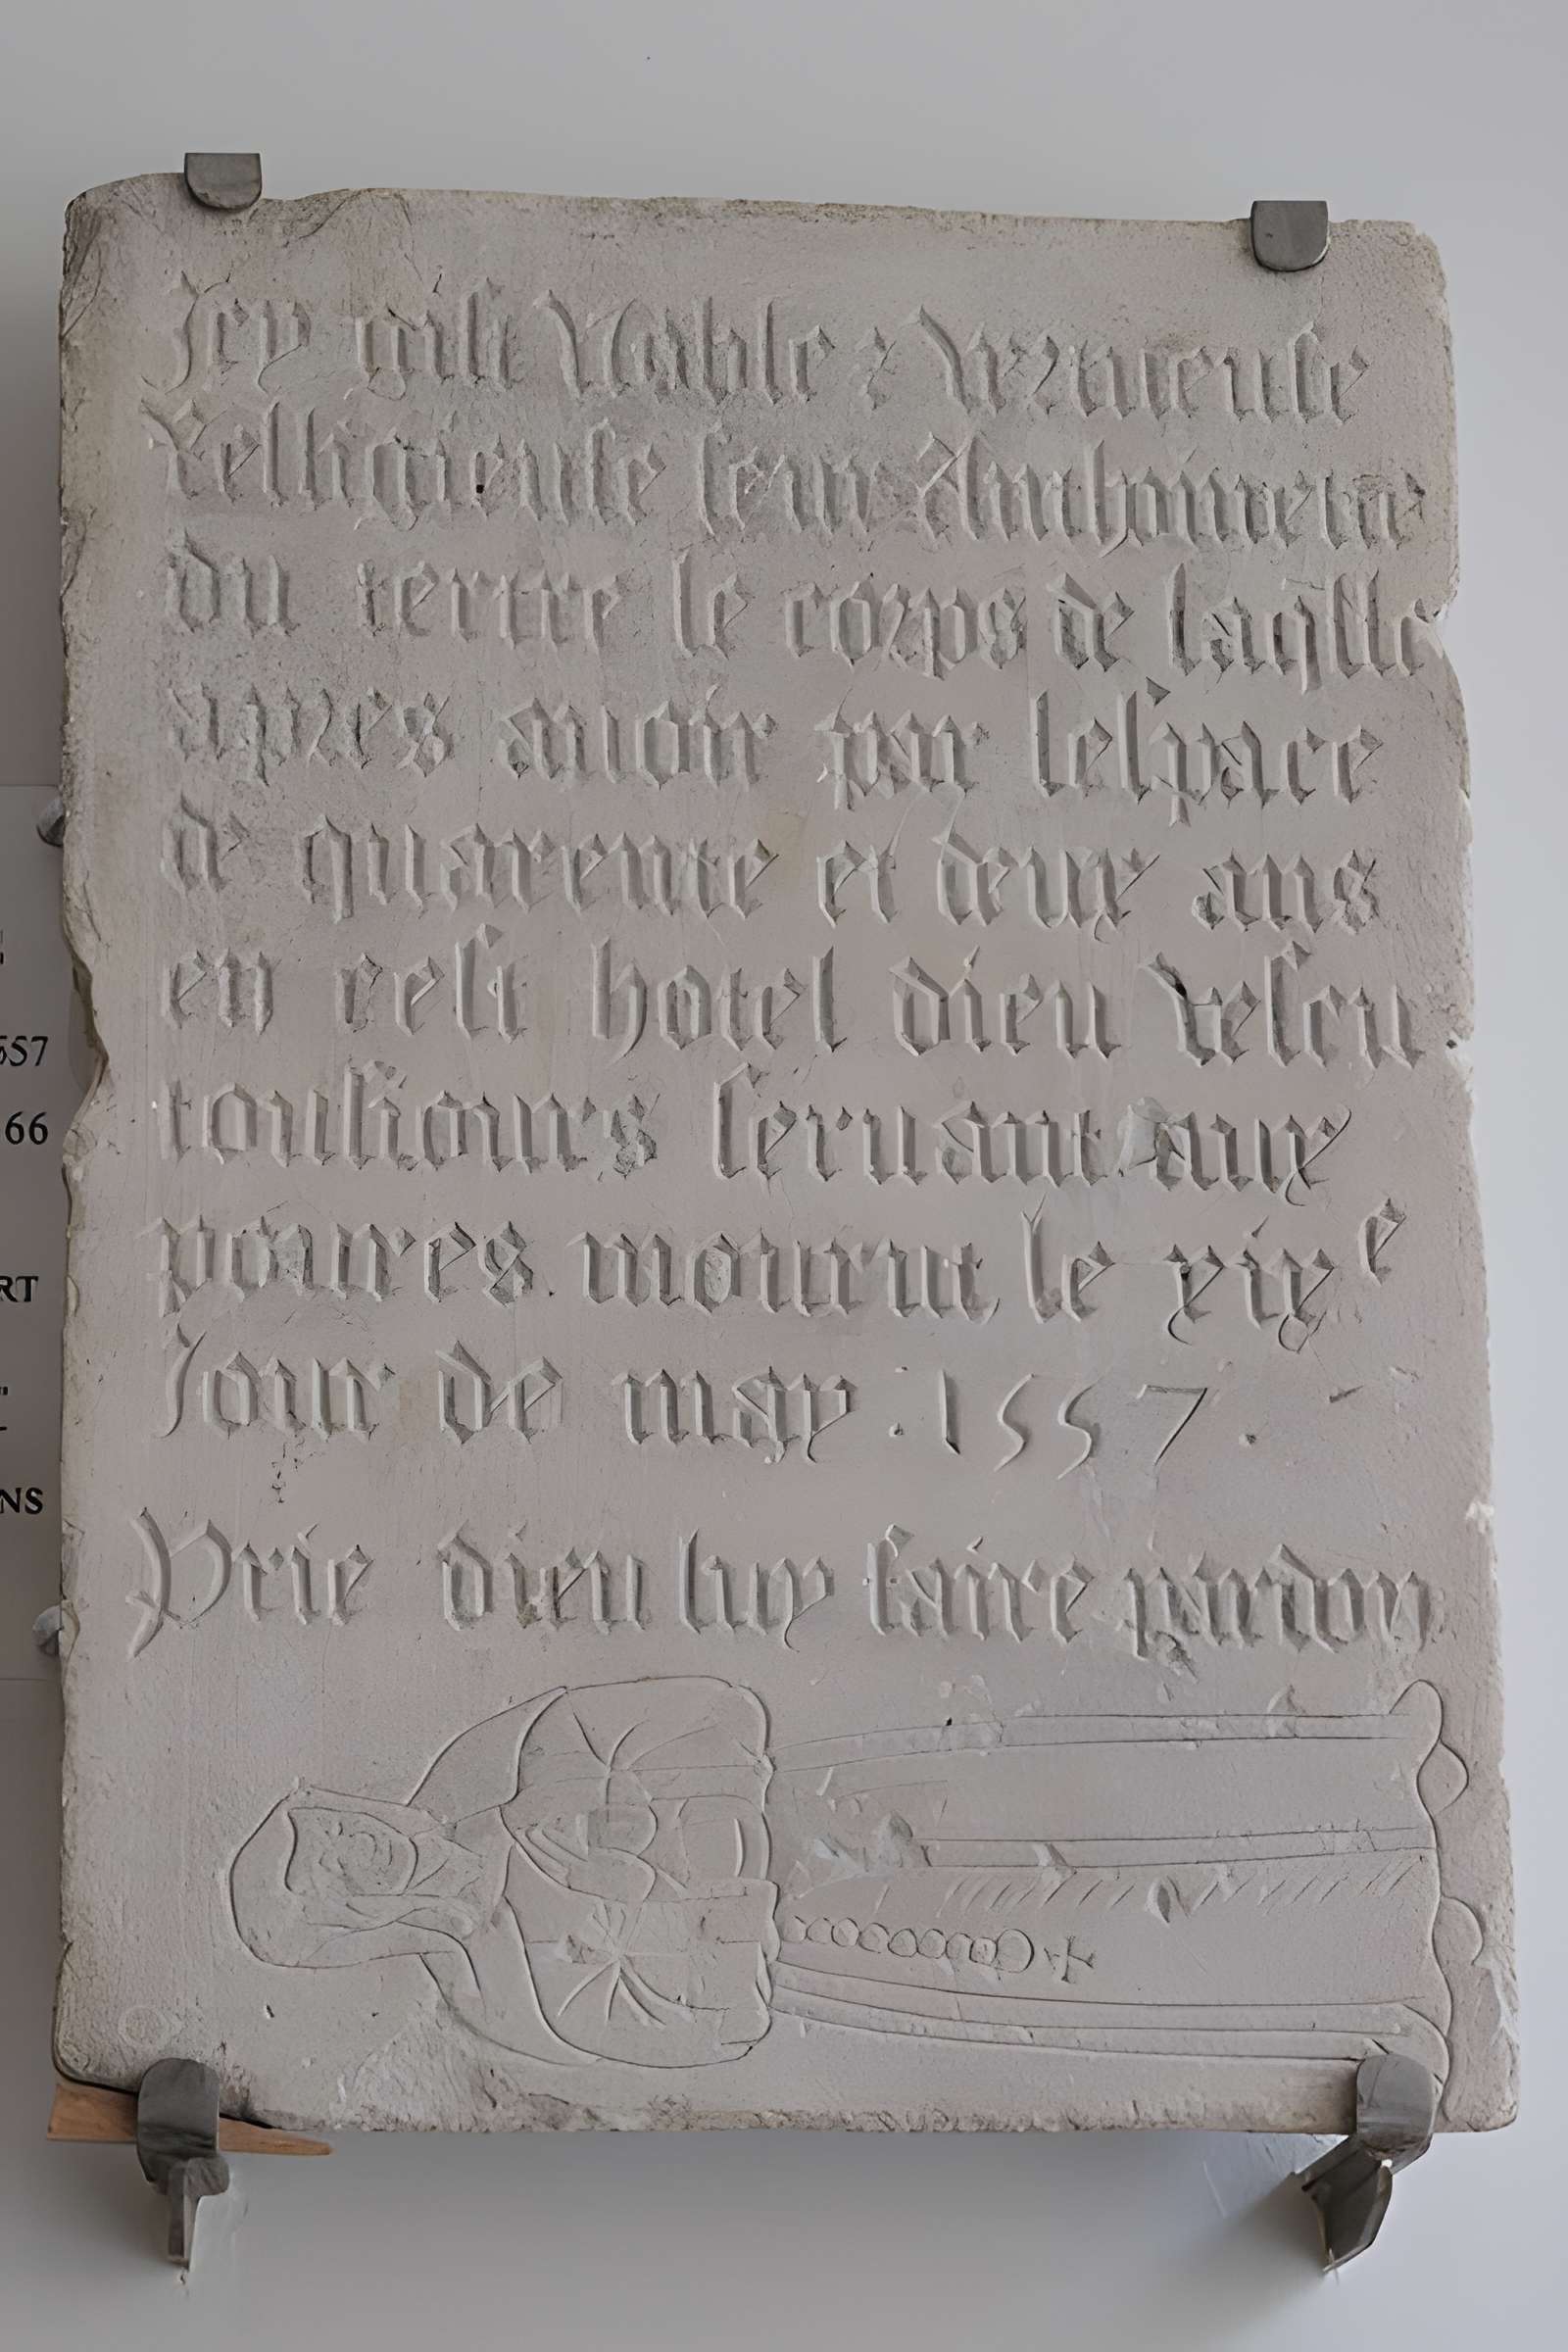 Icy gist Noble & vertueuse
Relligieuse seur Anthoinette
du tertre le corps de laq̃lle
apres auoir par lespace
de quarente et deux ans
en cest hotel dieu vescu
tousiours seruant aux
poures mourut le xixᵉ
Jour de may . 1557 .
Prie dieu luy faire pardon
557
66
RT
NS